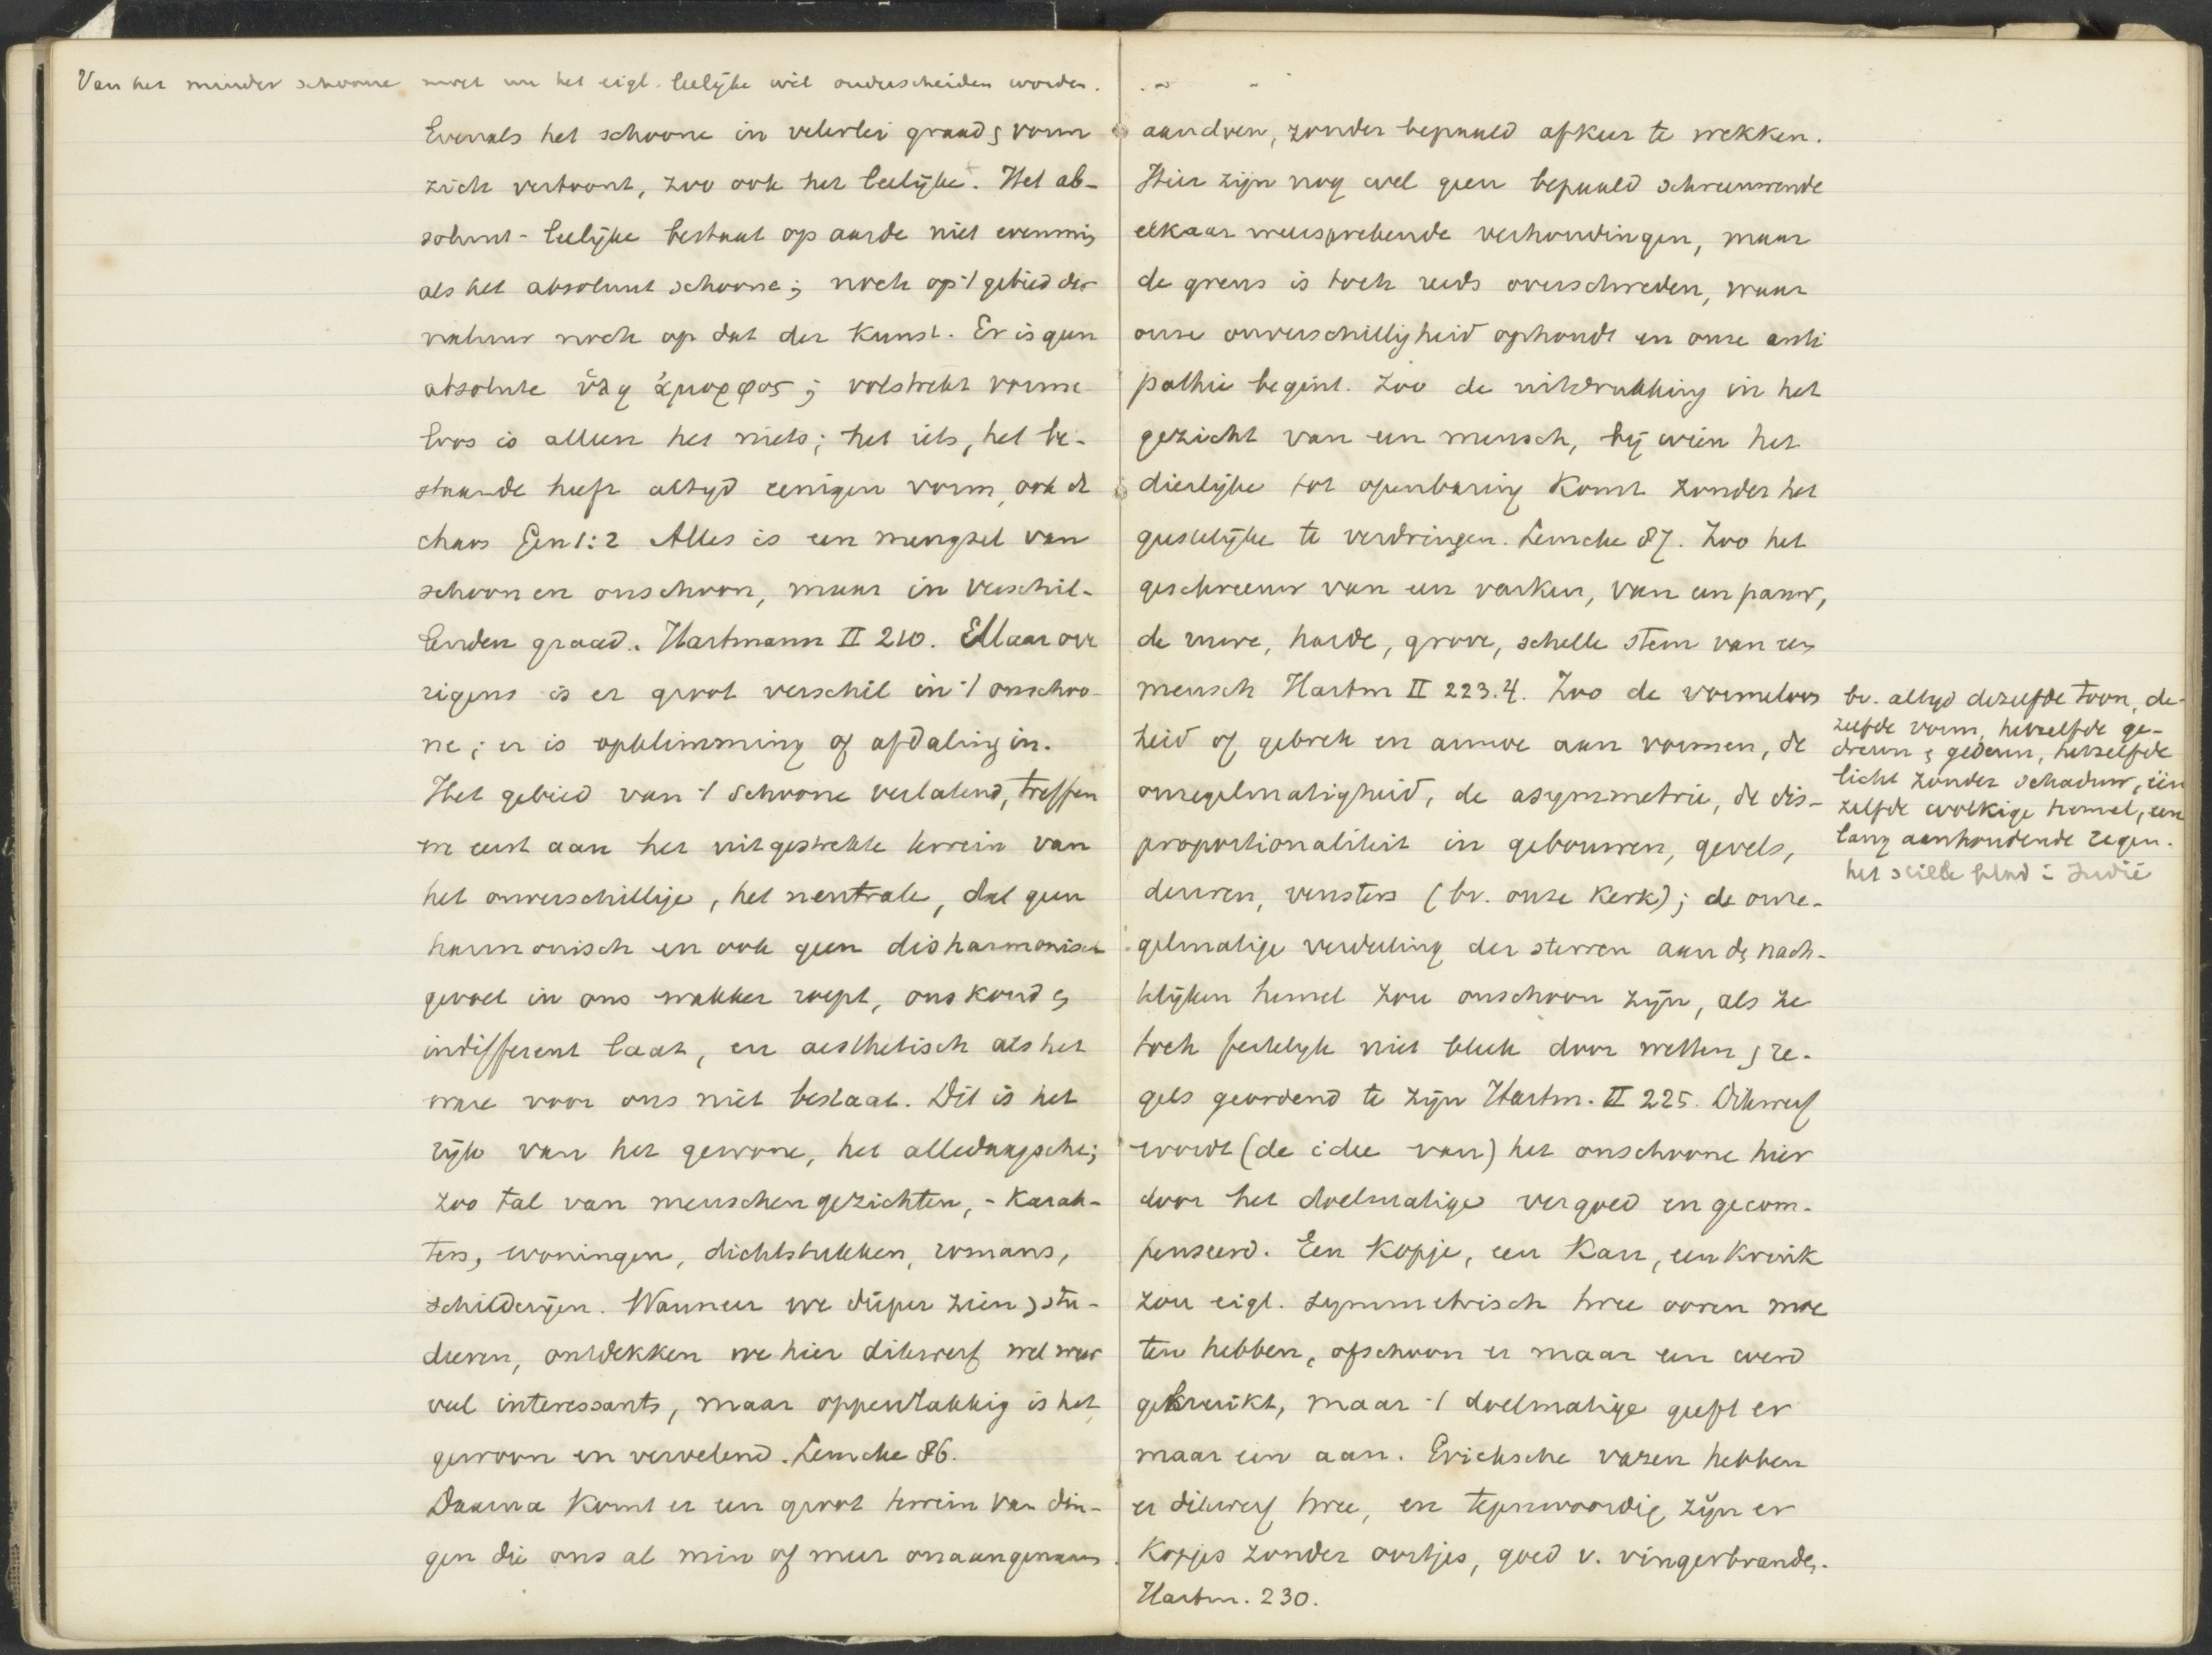 Van het minder schoone moet nu het eigl. leelijke wèl onderscheiden worden.
Evenals het schoone in velerlei graad & vorm
zich vertoont, zoo ook het leelijke. Het ab-
soluut-leelijke bestaat op aarde niet evenmin
als het absoluut schoone; noch op 't gebied der
natuur noch op dat der kunst. Er is geen
absolute ὕλη ἄμορφος; volstrekt vorme
loos is alleen het niets; het iets, het be-
staande heeft altijd eenigen vorm, ook de
chaos Gen 1:2 Alles is een mengsel van
schoon en onschoon, maar in verschil-
lenden graad. Hartmann II 210. Maar ove
rigens is er groot verschil in 't onschoo-
ne; er is opklimming of afdaling in.
Het gebied van 't schoone verlatend, treffen
we eerst aan het uitgestrekte terrein van
het onverschillige, het neutrale, dat geen
harmonisch en ook geen disharmonisch
gevoel in ons wakker roept, ons koud &
indifferent laat, en aesthetisch als het
ware voor ons niet bestaat. Dit is het
rijk van het gewone, het alledaagsche;
zoo tal van menschengezichten, - karak-
ters, woningen, dichtstukken, romans,
schilderijen. Wanneer we dieper zien & stu-
deeren, ontdekken we hier dikwerf wel weer
veel interessants, maar oppervlakkig is het
gewoon en vervelend. Lemcke 86.
Daarna komt er een groot terrein van din-
gen die ons al min of meer onaangenaam
aandoen, zonder bepaald afkeur te wekken.
Hier zijn nog wel geen bepaald schreeuwende
elkaar weersprekende verhoudingen, maar
de grens is toch reeds overschreden, waar
onze onverschilligheid ophoudt en onze anti
pathie begint. Zoo de uitdrukking in het
gezicht van een mensch, bij wien het
dierlijke tot openbaring komt zonder het
geestelijke te verdringen. Lemcke 87. Zoo het
geschreeuw van een varken, van een pauw,
de ruwe, harde, grove, schelle stem van een
mensch Hartm II 223.4. Zoo de vormeloos
heid of gebrek en armoe aan vormen, de
onregelmatigheid, de asymmetrie, de dis-
proportionaliteit in gebouwen, gevels,
deuren, vensters (bv. onze kerk); de onre-
gelmatige verdeeling der sterren aan den nach-
telijken hemel zou onschoon zijn, als ze
toch feitelijk niet bleek door wetten & re-
gels geordend te zijn Hartm. II 225. Dikwerf
wordt (de idee van) het onschoone hier
door het doelmatige vergoed en gecom-
penseerd. Een kopje, een kan, een kruik
zou eigl. symmetrisch twee ooren moe
ten hebben, ofschoon er maar een werd
gebruikt, maar 't doelmatige geeft er
maar een aan. Grieksche vazen hebben
er dikwerf twee, en tegenwoordig zijn er
kopjes zonder oortjes, goed v. vingerbranden.
Hartm. 230.
bv. altijd dezelfde toon, de-
zelfde vorm, hetzelfde ge-
dreun & gedeun, hetzelfde
licht zonder schaduw, één
zelfde wolkige hemel, een
lang aanhoudende regen.